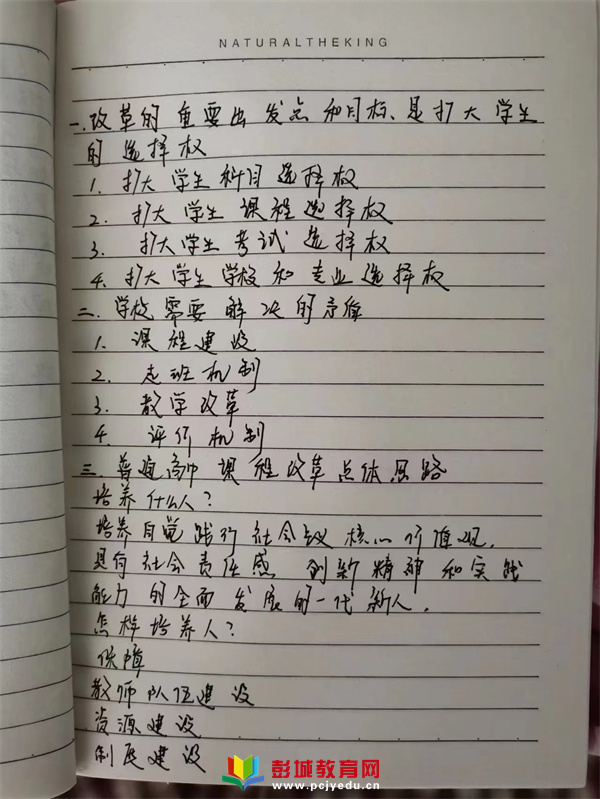 NATURALTHEKING
一.改革的重要出发点和目标、是扩大学生
的选择权
1. 扩大学生科目选择权
2. 扩大学生课程选择权
3. 扩大学生考试选择权
4. 扩大学生学校和专业选择权
二.学校需要解决的
1. 课程建设
2. 走班机制
3. 教学改革
4. 评价机制
三.普通高中课程改革总体思路
培养什么人?
培养自觉践行社会主义核心价值观,
具有社会责任感 创新精神和实践
能力的全面发展的一代新人.
怎样培养人?
保障
教师队伍建设
资源建设
制度建设
彭城教育网
www.pcjyedu.cn